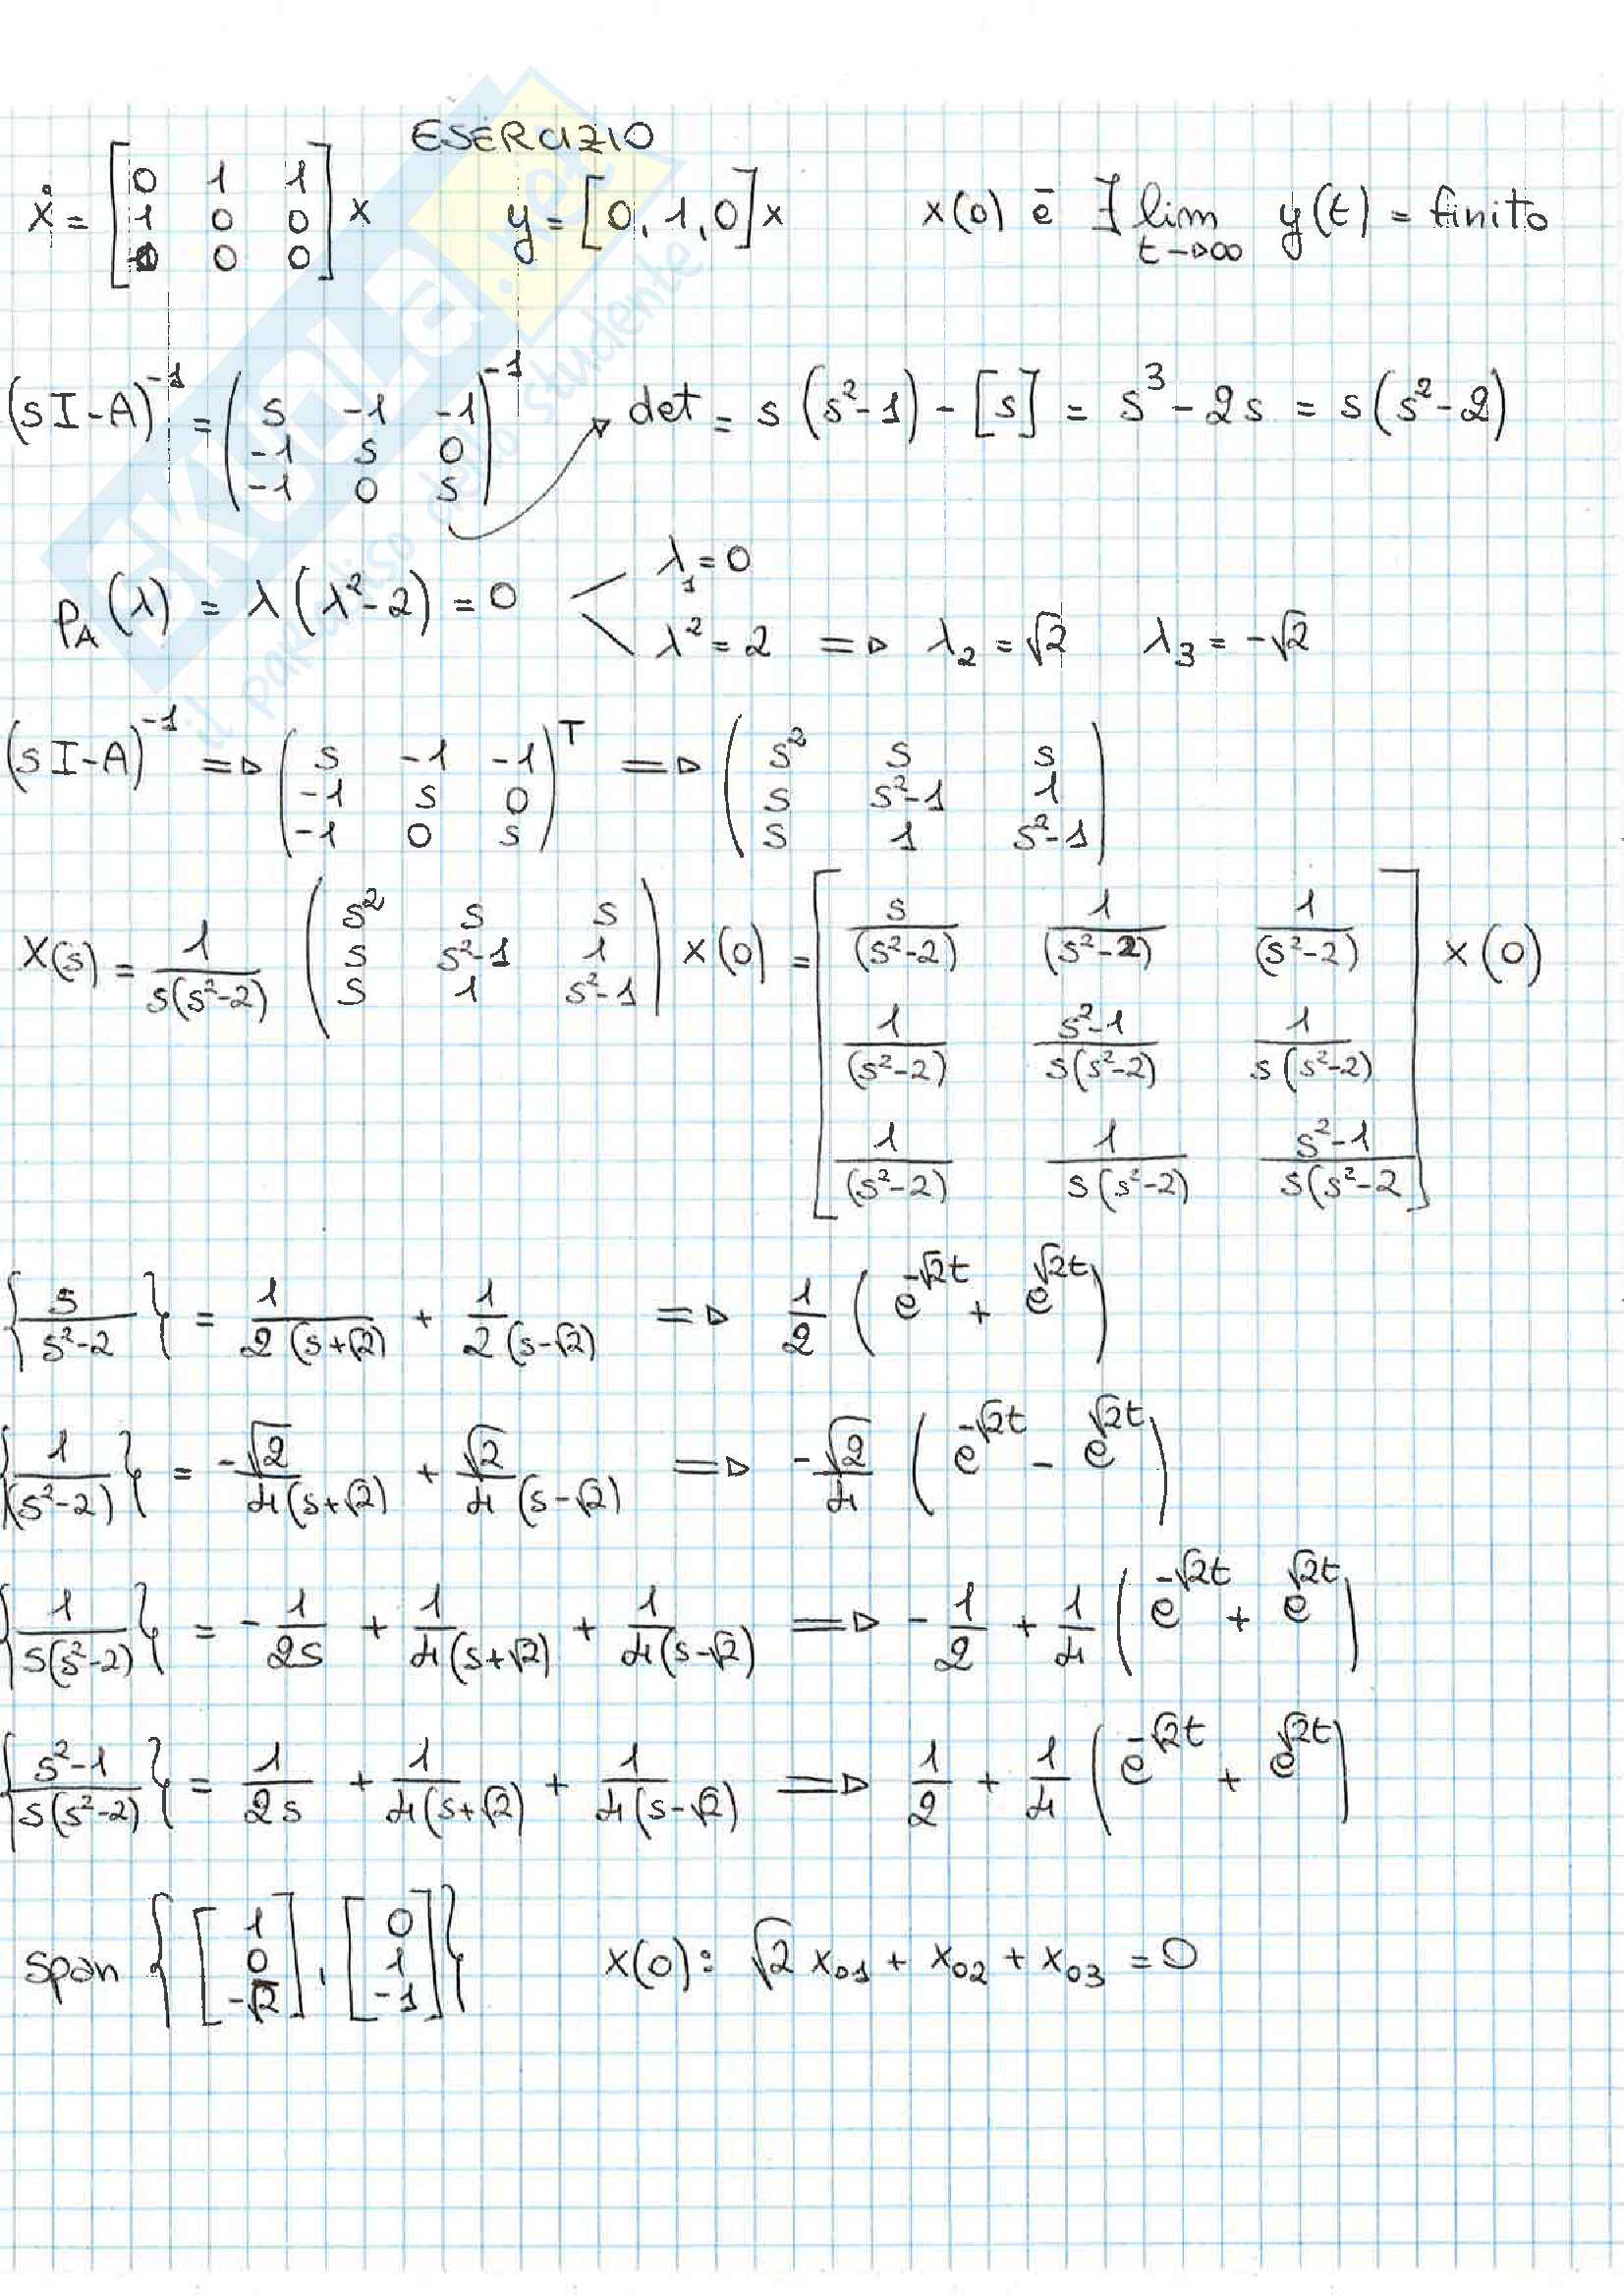 ESERCIZIO
ẋ = [0 1 1; 1 0 0; 0 0 0] x   y = [0, 1, 0] x   x(0) è ∃ lim t→∞ y(t) = finito
(sI-A)⁻¹ = (s -1 -1; -1 s 0; -1 0 s)⁻¹   det = s(s²-1) - [s] = s³ - 2s = s(s²-2)
p_A(λ) = λ(λ²-2) = 0   λ₁ = 0
λ² = 2 ⇒ λ₂ = √2   λ₃ = -√2
(sI-A)⁻¹ ⇒ (s -1 -1; -1 s 0; -1 0 s)ᵀ ⇒ (s² s s; s s²-1 1; s 1 s²-1)
X(s) = 1/(s(s²-2)) (s² s s; s s²-1 1; s 1 s²-1) x(0) = [s/(s²-2) 1/(s²-2) 1/(s²-2); 1/(s²-2) (s²-1)/(s(s²-2)) 1/(s(s²-2)); 1/(s²-2) 1/(s(s²-2)) (s²-1)/(s(s²-2)] x(0)
{s/(s²-2)} = 1/(2(s+√2)) + 1/(2(s-√2)) ⇒ 1/2 (e^(-√2t) + e^(√2t))
{1/(s²-2)} = -√2/(4(s+√2)) + √2/(4(s-√2)) ⇒ -√2/4 (e^(-√2t) - e^(√2t))
{1/(s(s²-2))} = -1/(2s) + 1/(4(s+√2)) + 1/(4(s-√2)) ⇒ -1/2 + 1/4 (e^(-√2t) + e^(√2t))
{(s²-1)/(s(s²-2))} = 1/(2s) + 1/(4(s+√2)) + 1/(4(s-√2)) ⇒ 1/2 + 1/4 (e^(-√2t) + e^(√2t))
span {[1; 0; -√2], [0; 1; -1]}   x(0): √2 x₀₁ + x₀₂ + x₀₃ = 0
SKUOLA.net
il paradiso dello studente